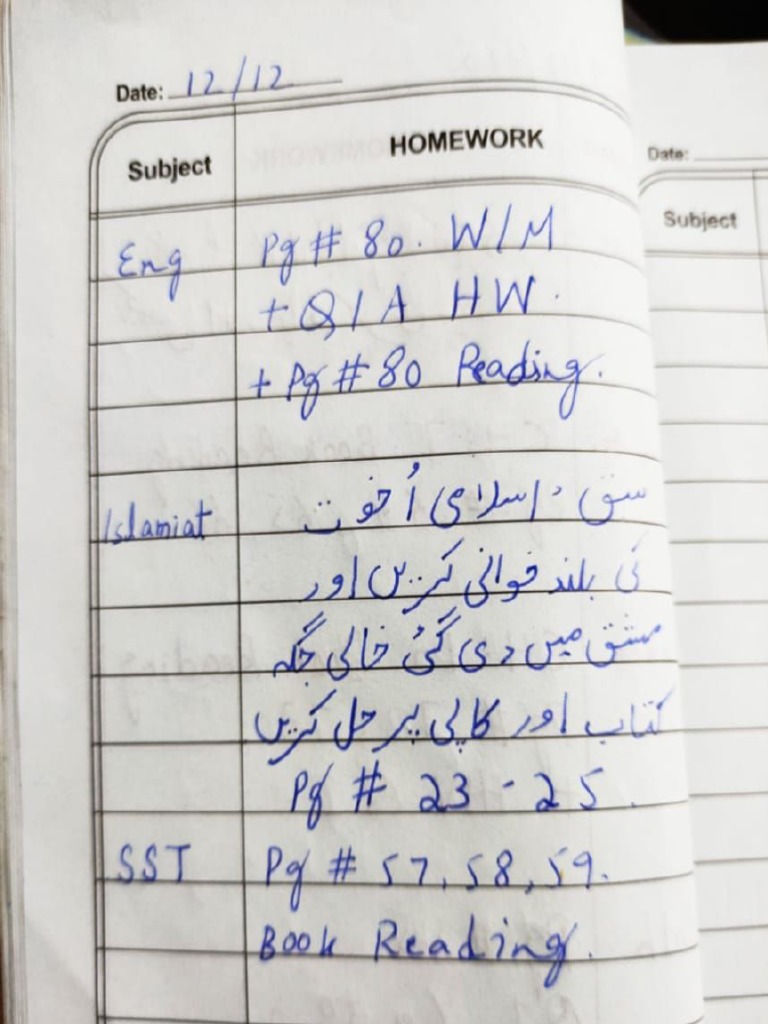 Date: 12/12
Subject HOMEWORK
Eng Pg # 80. W/M
+ Q/A HW.
+ Pg # 80 Reading.
Islamiat سبق : اسلامی اُخوت
کی بلند خوانی کریں اور
مشق میں دی گئی خالی جگہ
کتاب اور کاپی پر حل کریں
Pg # 23 - 25.
SST Pg # 57, 58, 59.
Book Reading.
Date:
Subject